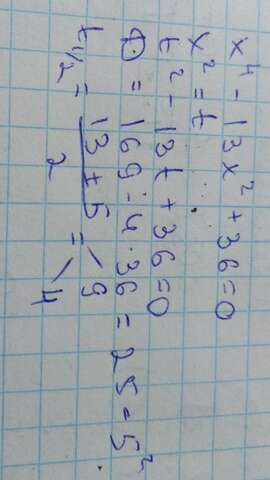 x⁴ - 13x² + 36 = 0
x² = t
t² - 13t + 36 = 0
D = 169 - 4 · 36 = 25 = 5²
t₁/₂ = (13 ± 5)/2 = 9
4